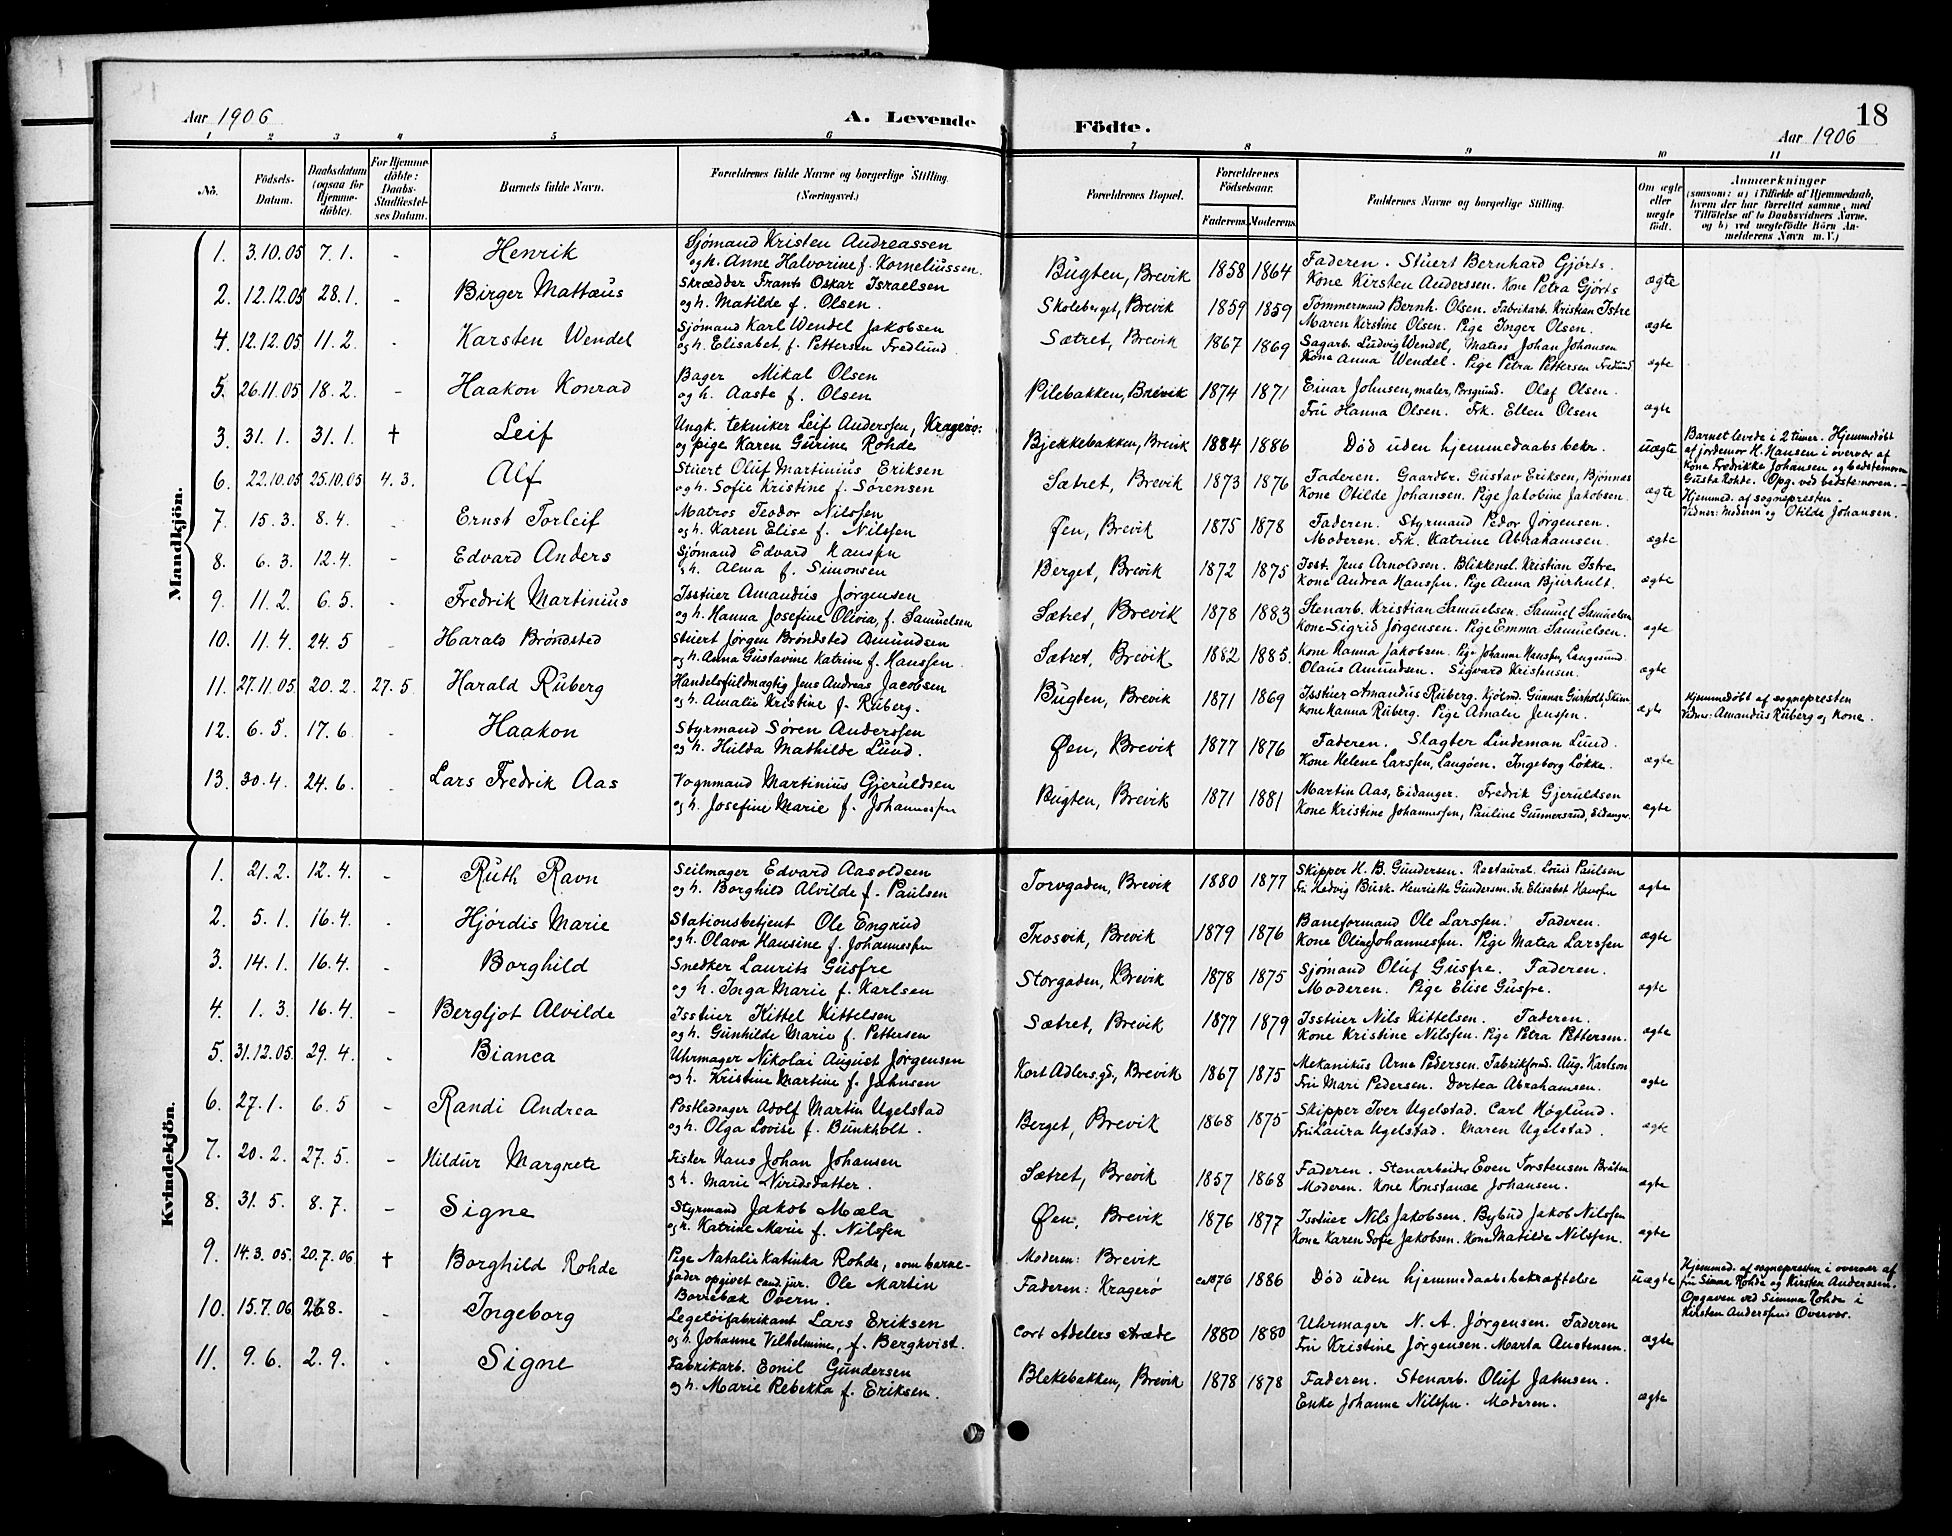 Levende
Aar 1906
A. Levende Födte.
18
Aar 1906
1 2 3 4 5 6 7 8 9 10 11
No.
Födsels-Datum.
Daabsdatum (ogsaa for Hjemmedöbte).
For Hjemmedöbte: Daabs-Stadfæstelses Datum.
Barnets fulde Navn.
Forældrenes fulde Navne og borgerlige Stilling. (Næringsvei.)
Forældrenes Bopæl.
Forældrenes Födselsaar.
Faderens. Moderens.
Faddernes Navne og borgerlige Stilling.
Om ægte eller uægte født.
Anmærkninger
(saasom: a) i Tilfælde af Hjemmedaab, hvem der har forrettet samme, med Tilföielse af to Daabsvidners Navne, og b) ved uægtefödte Börn Anmelderens Navn m. V.)
Mandkjön.
1. 3.10.05 7.1. - Henrik Sjømand Kristen Andreassen
og h. Anne Halvorine f. Korneliussen. Bugten, Brevik 1858 1864 Faderen. Stuert Bernhard Gjørts.
Kone Kirsten Anderssen. Kone Petra Gjørts ægte
2. 12.12.05 28.1. - Birger Mattæus Skrædder Frants Oskar Israelsen
og h. Matilde f. Olsen. Skoleberget, Brevik 1859 1859 Tømmermand Bernh. Olsen. Fabrikarb. Kristian Istre
Maren Kirstine Olsen. Pige Inger Olsen. ægte
4. 12.12.05 11.2. - Karsten Wendel Sjømand Karl Wendel Jakobsen
og h. Elisabet, f. Pettersen Fredlund Sætret, Brevik 1867 1869 Sagarb. Ludvig Wendel, Matros Johan Johansen
Kone Anna Wendel. Pige Petra Pettersen Fredlund ægte
5. 26.11.05 18.2. - Haakon Konrad Bager Mikal Olsen
og h. Aaste f. Olsen Pilebakken, Brevik 1874 1871 Einar Johnsen, maler, Porsgrund. Olaf Olsen.
Fru Hanna Olsen. Frk. Ellen Olsen ægte
3. 31.1. 31.1. † Leif Ungk. tekniker Leif Anderssen, Kragerø:
og pige Karen Gurine Rohde Bjekkebakken, Brevik 1884 1886 Død uden hjemmedaabs bekr. uægte Barnet levede i 2 timer. Hjemmedøbt
af jordemor H. Hansen i overvær af
Kone Fredrikke Johansen og bedstemoren
Gusta Rohde. Opg. ved bedstemoren. -
6. 22.10.05 25.10.05 4.3. Alf Stuert Oluf Martinius Eriksen
og h. Sofie Kristine f. Sørensen Sætret, Brevik 1873 1876 Faderen. Gaardbr. Gustav Eriksen, Bjønnes
Kone Otilde Johansen. Pige Jakobine Jakobsen. ægte Hjemmed. af sognepresten.
Vidner: Moderen og Otilde Johansen.
7. 15.3. 8.4. - Ernst Torleif Matros Teodor Nilssen
og h. Karen Elise f. Nilssen Øen, Brevik 1875 1878 Faderen. Styrmand Peder Jørgensen.
Moderen. Frk. Katrine Abrahamsen. ægte
8. 6.3. 12.4. - Edvard Anders Sjømand Edvard Hanssen
og h. Alma f. Simonsen Berget, Brevik 1872 1875 Isst. Jens Arnoldsen. Blikkensl. Kristian Istre
Kone Andrea Hanssen. Pige Anna Bjurhult. ægte
9. 11.2. 6.5. - Fredrik Martinius Isstuer Amandus Jørgensen
og h. Hanna Josefine Olivia, f. Samuelsen Sætret, Brevik 1878 1883 Stenarb. Kristian Samuelsen. Samuel Samuelsen
Kone Sigrid Jørgensen. Pige Emma Samuelsen. ægte
10. 11.4. 24.5 - Harald Brøndsted Stuert Jørgen Brøndsted Amundsen
og h. Anna Gustavine Katrine f. Hanssen. Sætret, Brevik 1882 1885. Kone Hanna Jakobsen. Pige Johanne Hanssen, Langesund.
Olaus Amundsen. Sigvard Kristensen. ægte
11. 27.11.05 20.2. 27.5 Harald Ruberg Handelsfuldmægtig Jens Andreas Jacobsen
og h. Amalie Kristine f. Ruberg. Bugten, Brevik 1871 1869 Isstuer Amandus Ruberg. Kjøbmd. Gunnar Gurholt, Skien
Kone Hanna Ruberg. Pige Amalie Jenssen. ægte Hjemmedøbt af sognepresten
Vidner: Amandus Ruberg og Kone.
12. 6.5. 17.6. - Haakon Styrmand Søren Anderssen
og h. Hulda Mathilde Lund. Øen, Brevik 1877 1876 Faderen. Slagter Lindeman Lund.
Kone Helene Larssen, Langøen. Ingeborg Løkke. ægte
13. 30.4. 24.6. - Lars Fredrik Aas Vognmand Martinius Gjeruldsen
og h. Josefine Marie f. Johannessen Bugten, Brevik 1871 1881 Martin Aas, Eidanger. Fredrik Gjeruldsen
Kone Kristine Johannessen, Pauline Gunnersrud, Eidanger. ægte
Kvindekjön.
1. 21.2. 12.4. - Ruth Ravn Seilmager Edvard Aasoldsen
og h. Borghild Alvilde f. Paulsen Torvgaden, Brevik 1880 1877 Skipper H. B. Gundersen. Restaurat. Louis Paulsen
Fru Hedvig Busk. Henriette Gundersen. Fr. Elisabet Hanssen ægte
2. 5.1. 16.4. - Hjørdis Marie Stationsbetjent Ole Engrud
og h. Olava Hansine f. Johannessen Trosvik, Brevik 1879 1876 Baneformand Ole Larssen. Faderen.
Kone Oline Johannessen. Pige Matea Larssen ægte
3. 14.1. 16.4. - Borghild Snedker Laurits Gusfre
og h. Inga Marie f. Karlsen Storgaden, Brevik 1878 1875 Sjømand Oluf Gusfre. Faderen.
Moderen. Pige Elise Gusfre. ægte
4. 1.3. 16.4. - Bergljot Alvilde Isstuer Kittel Kittelsen
og h. Gunhilde Marie f. Pettersen Sætret, Brevik 1877 1879 Isstuer Nils Kittelsen. Faderen.
Kone Kristine Nilssen. Pige Petra Pettersen. ægte
5. 31.12.05. 29.4. - Bianca Uhrmager Nikolai August Jørgensen
og h. Kristine Martine f. Jahnsen Kort Adlers gd., Brevik 1867 1875 Mekanikus Arne Pedersen. Fabrikformd. Aug. Karlson
Fru Mari Pedersen. Dortea Abrahamsen. ægte
6. 27.1. 6.5 - Randi Andrea Postledsager Adolf Martin Ugelstad
og h. Olga Lovise f. Bunkholt. Berget, Brevik 1868 1875 Skipper Iver Ugelstad. Carl Høglund.
Fru Laura Ugelstad. Maren Ugelstad. ægte
7. 20.2. 27.5. - Hildur Margrete Fisker Hans Johan Johansen
og h. Marie Niridsdatter. Sætret, Brevik 1857 1868 Faderen. Stenarbeider Even Torstensen Bråten
Moderen. Kone Konstance Johansen. ægte
8. 31.5. 8.7. - Signe Styrmand Jakob Mæla
og h. Katrine Marie f. Nilssen Øen, Brevik 1876 1877 Isstuer Nils Jakobsen. Bybud Jakob Nilssen
Kone Karen Sofie Jakobsen. Kone Matilde Nilssen. ægte
9. 14.3.05. 20.7.06 † Borghild Rohde Pige Natalie Katinka Rohde, som barne-
fader opgivet cand. jur. Ole Martin
Borrebæk Overn. Moderen: Brevik
Faderen: Kragerø ca 1876 1886 Død uden hjemmedaabsbekræftelse uægte Hjemmed. af sognepresten i overvær af
fru Simar Rohde og Kirsten Anderssen.
Opgaven ved Simma Rohde i
Kirsten Anderssens Overvær.
10. 15.7.06 26.8. - Ingeborg Legetøifabrikant Lars Eriksen
og h. Johanne Vilhelmine, f. Bergkvist. Cort Adelers stræde 1880 1880 Uhrmager N. A. Jørgensen. Faderen
Fru Kristine Jørgensen. Marta Austensen. ægte
11. 9.6. 2.9. - Signe Fabrikarb. Emil Gundersen
og h. Marie Rebekka f. Eriksen. Blekebakken, Brevik 1878 1878 Faderen. Stenarb. Oluf Jahnsen.
Enke Johanne Nilssen. Moderen. ægte